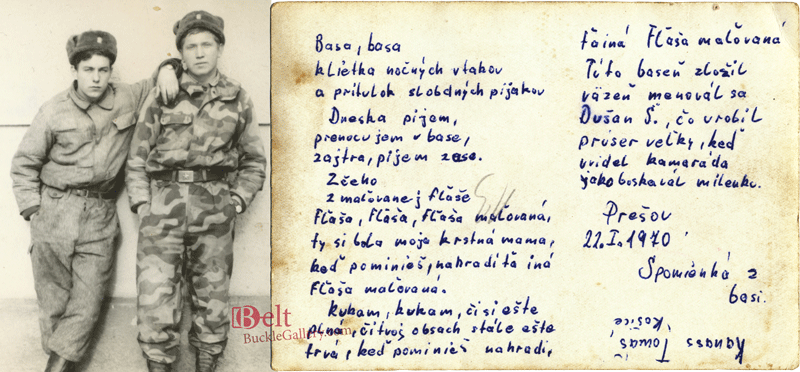 Basa, basa
klietka nočných vtakov
a pritulok slobdných pijakov
Dneska pijem,
prenocujem v base,
zajtra, pijem zase.
Zčeho
z maľovanej fľaše
Fľaša, Fľaša, Fľaša maľovaná,
ty si bola moja krstná mama,
keď pominieš, nahradí ťa iná
Fľaša maľovaná.
kukam, kukam, či si ešte
plná, či tvoj obsach stále ešte
trvá, keď pominieš nahradi,
ťainá Fľaša maľovaná
Túto baseň zložil
väzeň menovál sa
Dušan Š., čo urobil
prúser veľký, keď
uvidel kamaráda
jako boskavál milenku.
Prešov
22.I.1970
Spomienka z
basi.
Tomaš
Košice
Belt
BuckleGallery.com